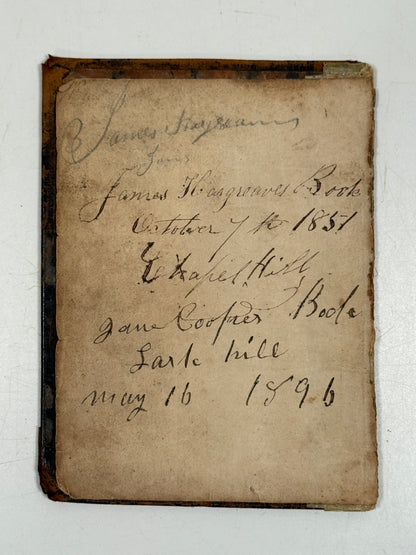 James Hargreaves
James
James Hargreaves Book
October 7th 1851
Chapel Hill
Jane Cooper's Book
Lark hill
may 16 1896